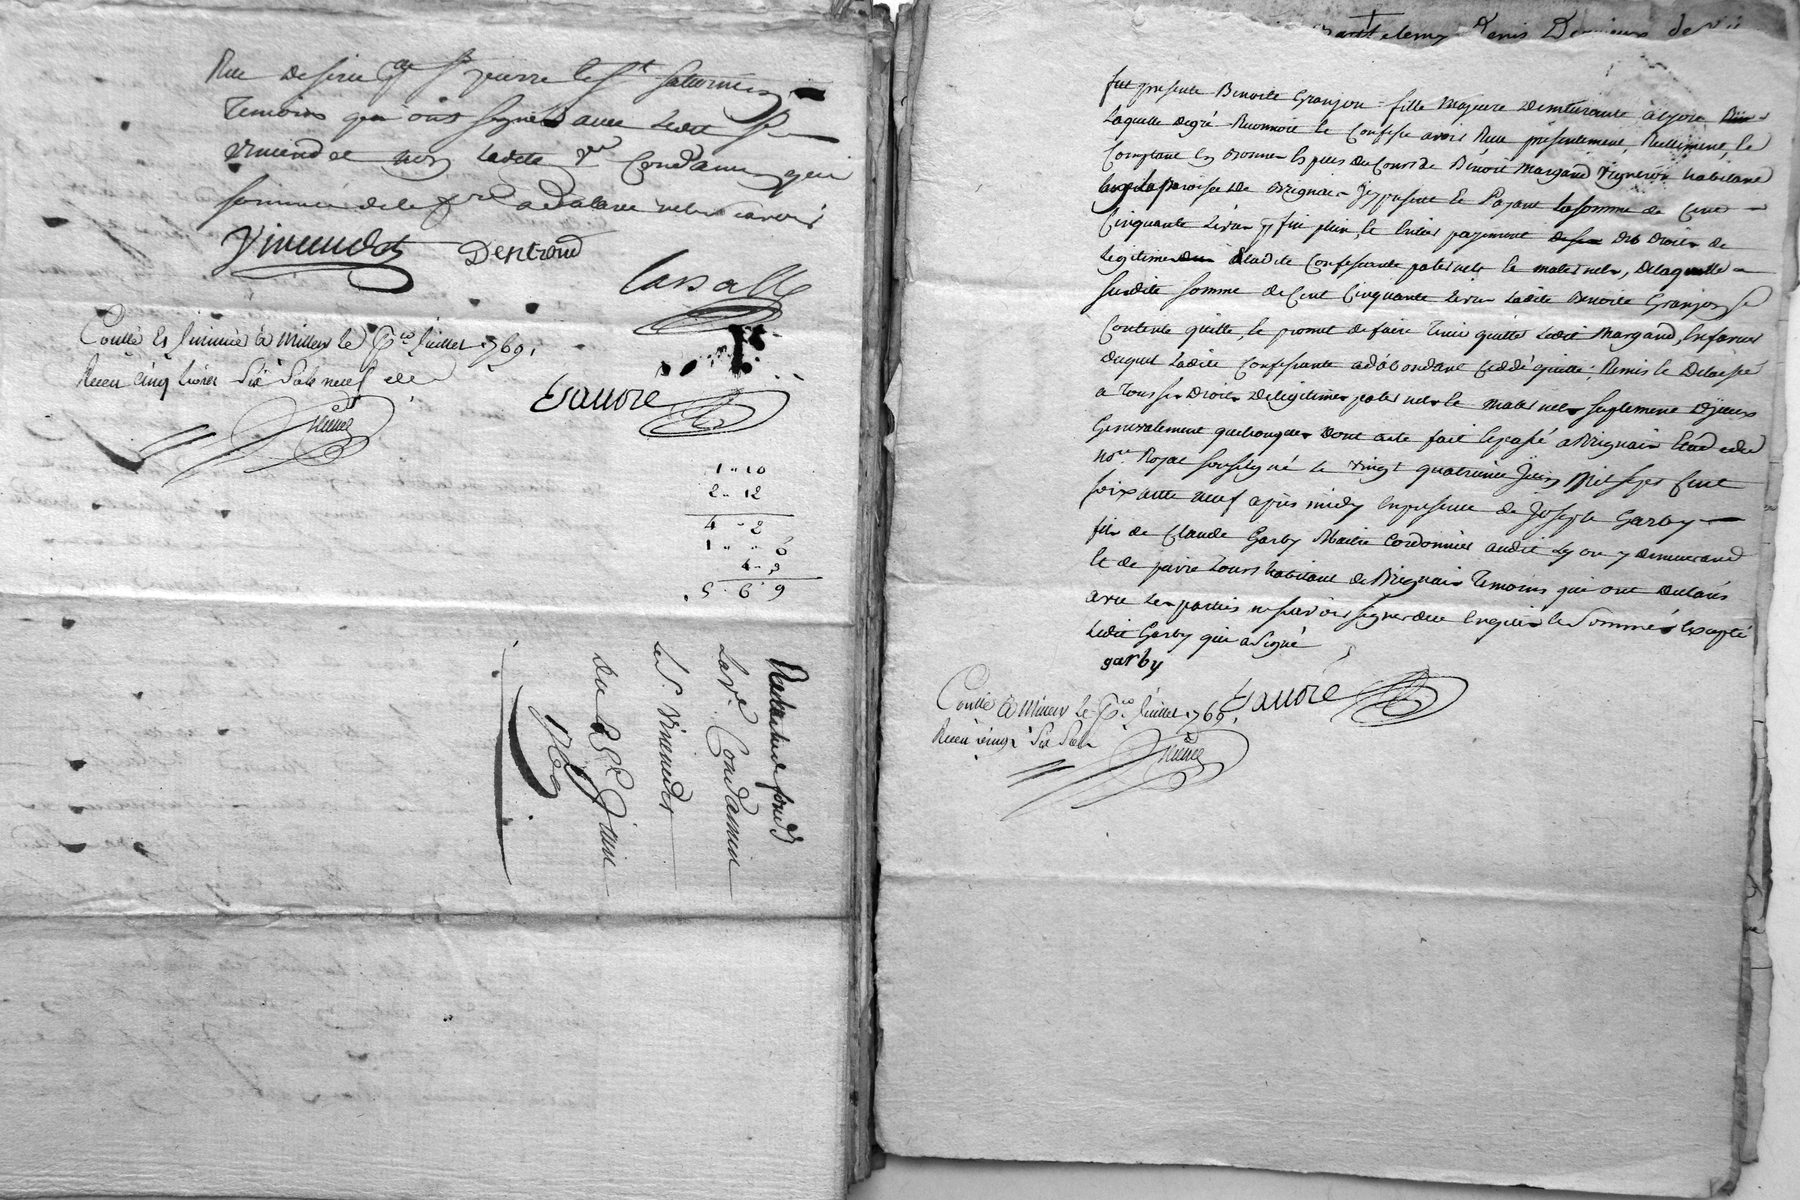 témoins qui ont signé avec ledit sr
Vincendet non ladite Condamin qui
Vincendet Dentrand
Lassalle
Conllé et Insinué à Millery le juillet 1769,
Receu cinq livres six sols neuf
Gauvre
1 .. 10
2 .. 12
4 .. 2
1 .. .. 6
4 .. 9
5 .. 6 .. 9
lave. Condamin
le Sr. Vincendet
du 25e Juin
1769
Denis de
fut presente Benoite Granjon fille majeure demeurante a lyon
Laquelle degré Reconnoit et Confesse avoir Reçu présentement, Reellement, et
Comptant des deniers de Benoit Margand vigneron habitant
la paroisse de Brignais Icy present et payant la somme de Cent
Cinquante Livres pour fin plein, et entier payement des droits de
Légitime de ladite Confessante paternels et maternels, de laquelle
susdite somme de Cent Cinquante Livres Ladite Benoite Granjon se
Contente quitte, et promet de faire tenir quitte Ledit Margand, En faveur
duquel Ladite Confessante a d'abondant Ceddé quitté, Remis et Delaissé
a tous ses droits de legitimes paternels et maternels suplement d'yceux
Generalement quelconques dont acte fait et passé a Brignais Etude du
nore. Royal soussigné le vingt quatrieme Juin Mil sept Cent
soixante neuf après midy En presence de Joseph Garby
fils de Claude Garby Maitre Cordonnier audit Lyon y demeurand
et de pierre habitant de Brignais temoins qui ont
avec les parties ne savoir signer de ce Enquis et Sommés Excepté
Ledit Garby qui a signé
garby
Gauvre
Conllé à Millery le juillet 1769,
Receu vingt six sols